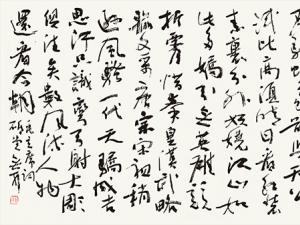 欲与天公
试比高须晴日看红装
素裹分外妖娆江山如
此多娇引无数英雄竞
折腰惜秦皇汉武略
输文采唐宗宋祖稍
逊风骚一代天骄成吉
思汗只识弯弓射大雕
俱往矣数风流人物
还看今朝
毛主席词